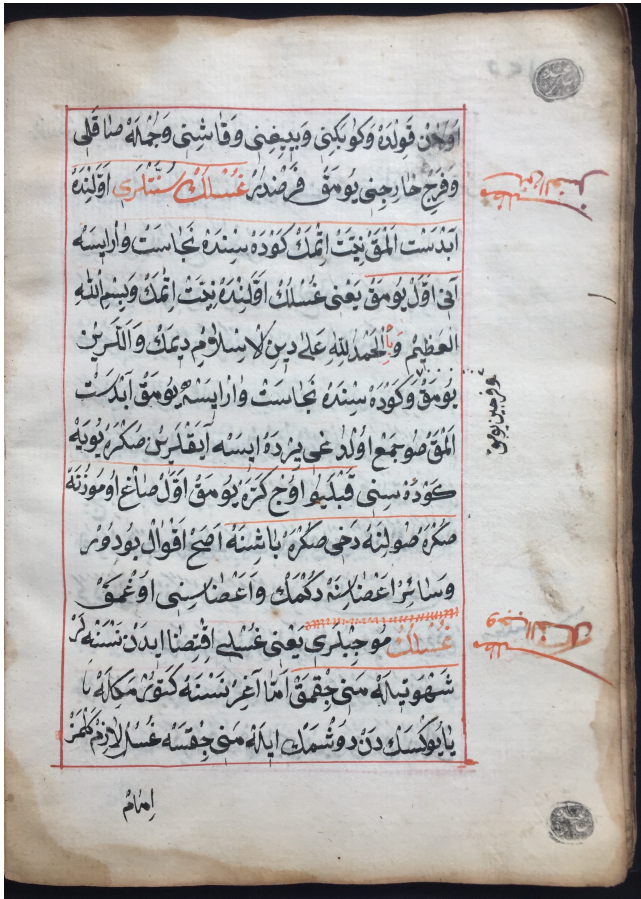 اوچن قولده وكوبكنى وبييغنى وقاشنى وجمله صاقلى
وفرج خارجنى يومق فرضدر غسلك سنتلرى اوّلنده
آبدست المق نيّت اتمك كوده سنده نجاست وارايسه
آنى اوّل يومق يعنى غسلك اوّلنده نيّت اتمك وبسم الله
العظيم والحمد لله على دين الاسلام ديمك واللرين
يومق وكوده سنده نجاست وارايسه يومق آبدست
وفرجين يومق
المق صو جمع اولدغى يرده ايسه آيقلرين صكره يويه
كوده سنى قبليو اوج كره يومق اوّل صاغ اوموزنه
صكره صولنه دخى صكره باشنه اصح اقوال بودور
وسائر اعضاسنه دكمك واعضاسنى اوغمق
غسلك موجبلرى يعنى غسلى اقتضا ايدن نسنه لر
شهوتيله منى چقمق امّا آغر نسنه كتورمكله يا
يا يوكسكدن دوشمك ايله منى چقسه غسل لازم كلمز
امام